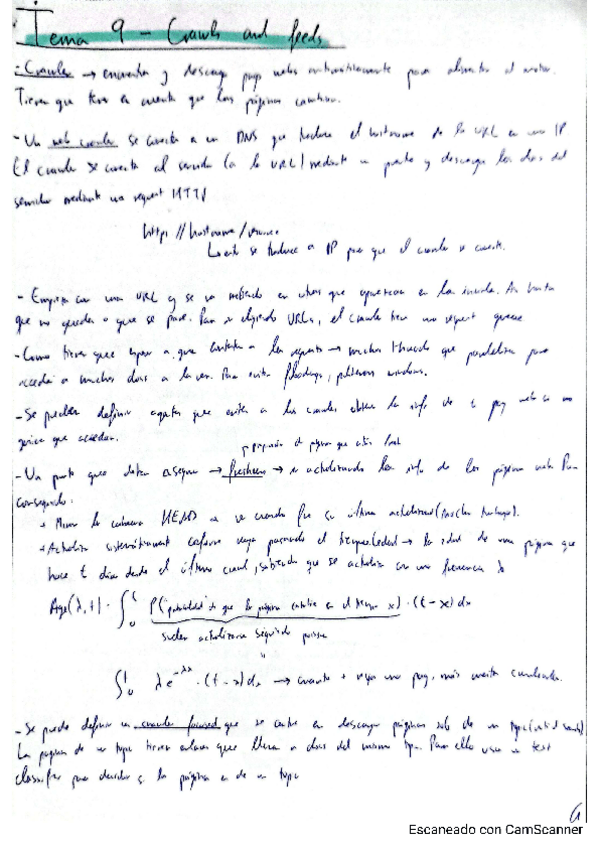 Tema 9 - Crawls and feeds
- Crawler → encuentra y descarga pags webs automáticamente para alimentar el motor.
Tienen que tener en cuenta que las páginas cambian.
- Un web crawler se conecta a un DNS que traduce el hostname de la URL en una IP
El crawler se conecta al servidor (a la URL) mediante un puerto y descarga los docs del
servidor mediante una request HTTP
http://hostname/
Lo cual se traduce a IP para que el crawler se conecte.
- Empieza con una URL y se va metiendo en otras que aparezcan en la misma. Así hasta
que no queden o que se pare. Para ir eligiendo URLs, el crawler tiene una request queue
- Como tiene que esperar a que contesten a las requests → muchos threads que paralelizan para
acceder a muchos docs a la vez. Para evitar floodings, politeness windows.
- Se pueden definir que eviten a los crawlers obtener la info de pag web si no
quiere que accedan.
proporción de páginas que están fresh
- Un punto que deben asegurar → freshness → ir actualizando la info de las páginas web. Para
conseguirlo:
+ Mirar la cabecera HEAD a ver cuando fue su última actualización (mucho trabajo).
+ Actualizar sistemáticamente conforme vaya pasando el → la edad de una página que
hace t días desde el último crawl, sabiendo que se actualiza con una frecuencia λ
Age(λ,t) = ∫₀ᵗ P("probabilidad" de que la página cambie en el tiempo x) · (t-x) dx
suelen actualizarse siguiendo poisson
∫₀ᵗ λe^-λx · (t-x) dx → cuanto + vieja una pag, más cuesta
- Se puede definir un crawler focused que se centre en descargar páginas solo de un tipo
La página de un tipo tienen enlaces que llevan a docs del mismo tipo. Para ello usa un text
classifier para decidir si la página es de un tipo
Escaneado con CamScanner